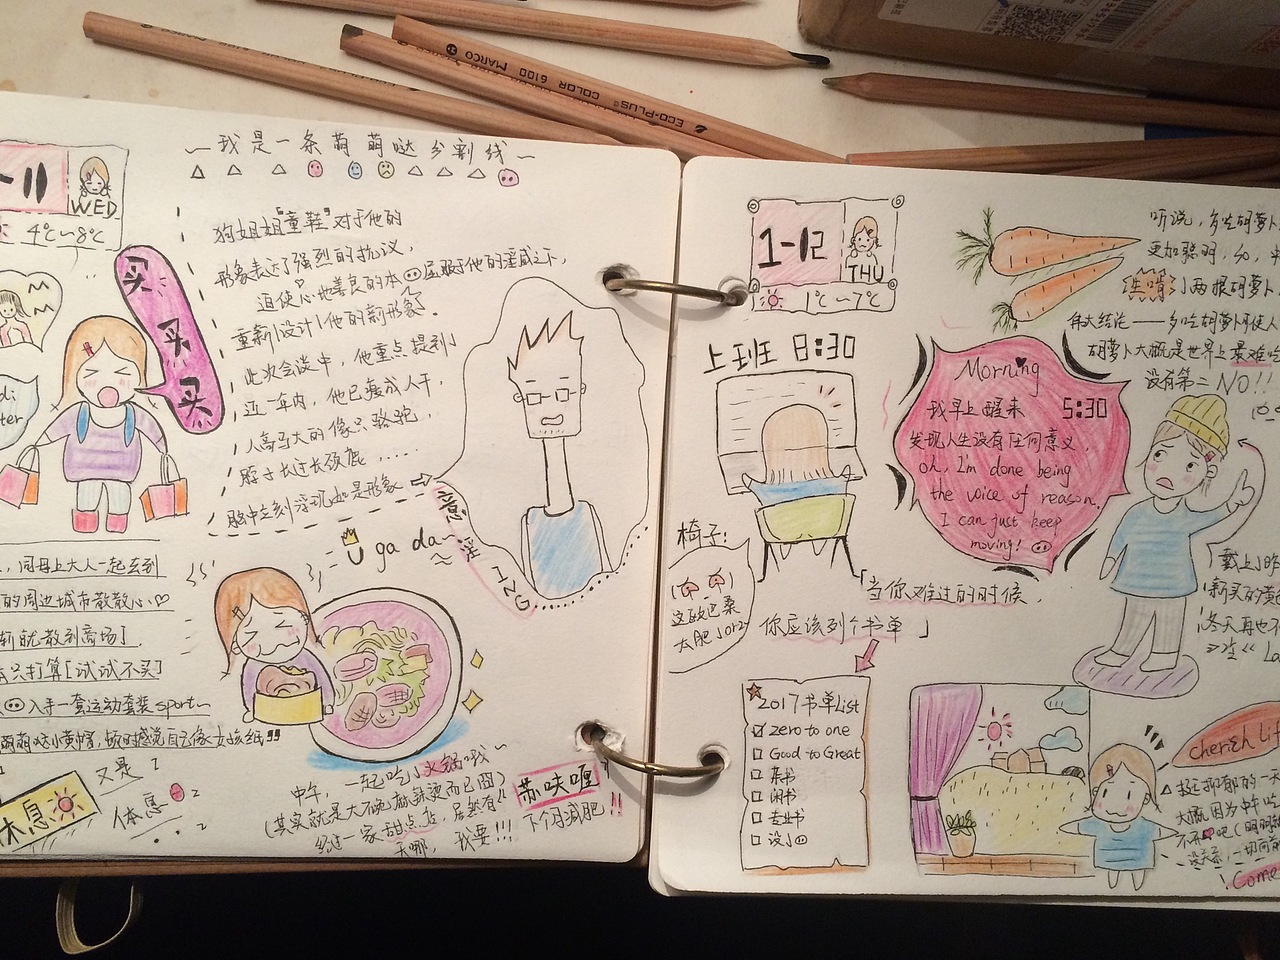 MARCO
COLOR 6100
ECO-PLUS
~我是一条萌萌哒分割线~
-11
WED
4℃~8℃
买
买
买
狗姐姐"童鞋"对于他的
形象表达了强烈的抗议,
迫使心地善良的本 屈服于他的淫威之下,
重新[设计]他的新形象.
此次会谈中,他重点提到
近一年内,他已瘦成人干,
人高马大的像只骆驼,
脖子长过长颈鹿......
脑中立刻浮现如是形象
意淫ING
U ga da~
同母上大人一起去到
的周边城市散散心
就散到商场]
只打算[试试不买]
入手一套运动套装sport~
萌萌哒小黄帽,顿时感觉自己像女孩纸"
休息
又是?
休息
中午,一起吃小火锅哦~
(其实就是大碗麻辣烫而已囧)
经过一家甜点店,居然有
苏呋喱
天哪,我要!!!
下个月减肥!!
1-12
THU
1℃~7℃
上班 8:30
椅子:
这货巴桑
太肥了orz
Morning
我早上醒来 5:30
发现人生没有任何意义,
oh, I'm done being
the voice of reason.
I can just keep
moving!
听说,多吃胡萝卜
更加聪明,so,
生啃了两根胡萝卜
伟大结论——多吃胡萝卜可使人
胡萝卜大概是世界上最难吃
没有第二NO!!
戴上昨
新买的黄色
冬天再也不
「当你难过的时候,
你应该列个书单」
2017书单List
Zero to one
Good to Great
菜书
闲书
专业书
没了
cherish lif
挺抑郁的一天
大概因为中午吃
没关系,一切向前
Come